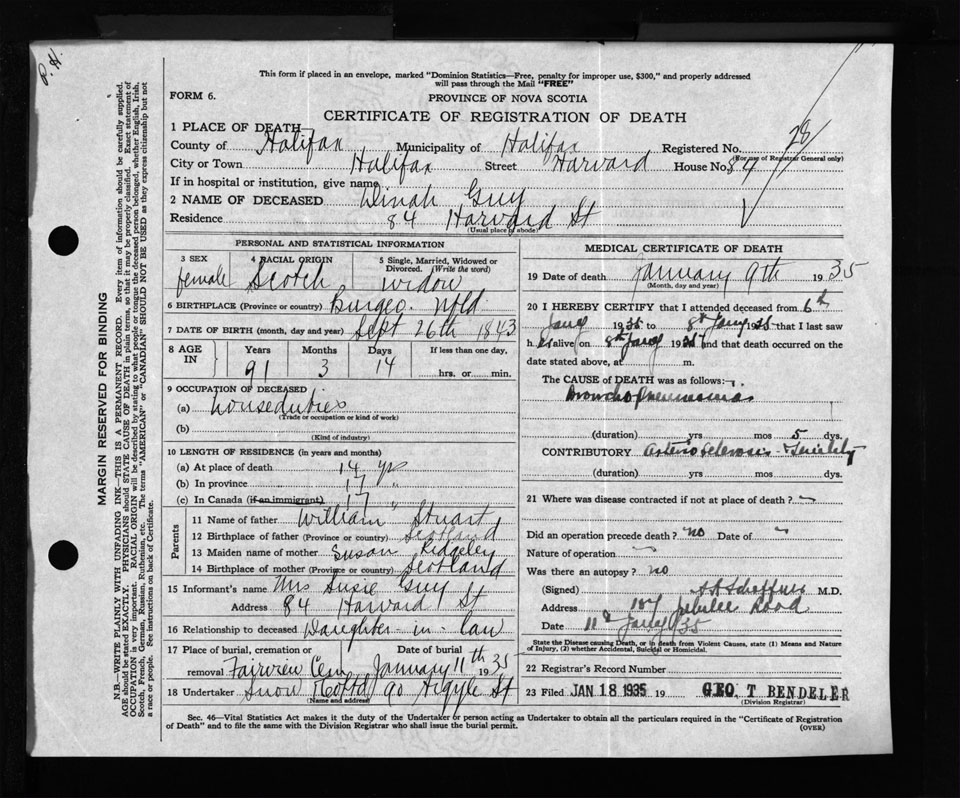 P. H.
This form if placed in an envelope, marked "Dominion Statistics—Free, penalty for improper use, $300," and properly addressed
will pass through the Mail "FREE"
FORM 6.
PROVINCE OF NOVA SCOTIA
CERTIFICATE OF REGISTRATION OF DEATH
1 PLACE OF DEATH—
County of Halifax Municipality of Halifax Registered No. 28
(For use of Registrar General only)
City or Town Halifax Street Harvard House No. 84
If in hospital or institution, give name
2 NAME OF DECEASED Dinah Guy
Residence 84 Harvard St
(Usual place of abode)
PERSONAL AND STATISTICAL INFORMATION
3 SEX female
4 RACIAL ORIGIN Scotch
5 Single, Married, Widowed or Divorced. (Write the word) widow
6 BIRTHPLACE (Province or country) Burgeo. Nfld
7 DATE OF BIRTH (month, day and year) Sept 26th 1843
8 AGE IN Years 91 Months 3 Days 14 If less than one day, hrs. or min.
9 OCCUPATION OF DECEASED
(a) houseduties
(Trade or occupation or kind of work)
(b)
(Kind of industry)
10 LENGTH OF RESIDENCE (in years and months)
(a) At place of death 14 yrs
(b) In province 17 "
(c) In Canada (if an immigrant) 17 "
Parents
11 Name of father William Stuart
12 Birthplace of father (Province or country) Scotland
13 Maiden name of mother Susan Ridgeley
14 Birthplace of mother (Province or country) Scotland
15 Informant's name Mrs Susie Guy
Address 84 Harvard St
16 Relationship to deceased Daughter-in-law
17 Place of burial, cremation or removal Fairview Cem Date of burial January 11th 1935
18 Undertaker Snow 90 Argyle St
(Name and address)
MEDICAL CERTIFICATE OF DEATH
19 Date of death January 9th 1935
(Month, day and year)
20 I HEREBY CERTIFY that I attended deceased from 6th
Jany 1935 to 8th Jany 1935 that I last saw
h er alive on 8th Jany 1935 and that death occurred on the
date stated above, at m.
The CAUSE of DEATH was as follows:
Broncho pneumonia
(duration) yrs mos 5 dys.
CONTRIBUTORY Arterio sclerosis - Senility
(duration) yrs mos dys.
21 Where was disease contracted if not at place of death?
Did an operation precede death? no Date of
Nature of operation
Was there an autopsy? no
(Signed) M.D.
Address 187 Jubilee Road
Date 11th Jany 1935
State the Disease causing Death, or in death from Violent Causes, state (1) Means and Nature
of Injury, (2) whether Accidental, Suicidal or Homicidal.
22 Registrar's Record Number
23 Filed JAN 18 1935 19 GEO. T BENDELER
(Division Registrar)
Sec. 46—Vital Statistics Act makes it the duty of the Undertaker or person acting as Undertaker to obtain all the particulars required in the "Certificate of Registration
of Death" and to file the same with the Division Registrar who shall issue the burial permit.
(OVER)
MARGIN RESERVED FOR BINDING
N.B.—WRITE PLAINLY WITH UNFADING INK—THIS IS A PERMANENT RECORD. Every item of information should be carefully supplied.
AGE should be stated EXACTLY. PHYSICIANS should STATE CAUSE OF DEATH in plain terms, so that it may be properly classified. Exact statement of
OCCUPATION is very important. RACIAL ORIGIN will be described by stating to what people or tongue the deceased person belonged, whether English, Irish,
Scotch, French, German, Russian, Ruthenian, etc. The terms "AMERICAN" or "CANADIAN" SHOULD NOT BE USED as they express citizenship but not
a race or people. See instructions on back of Certificate.